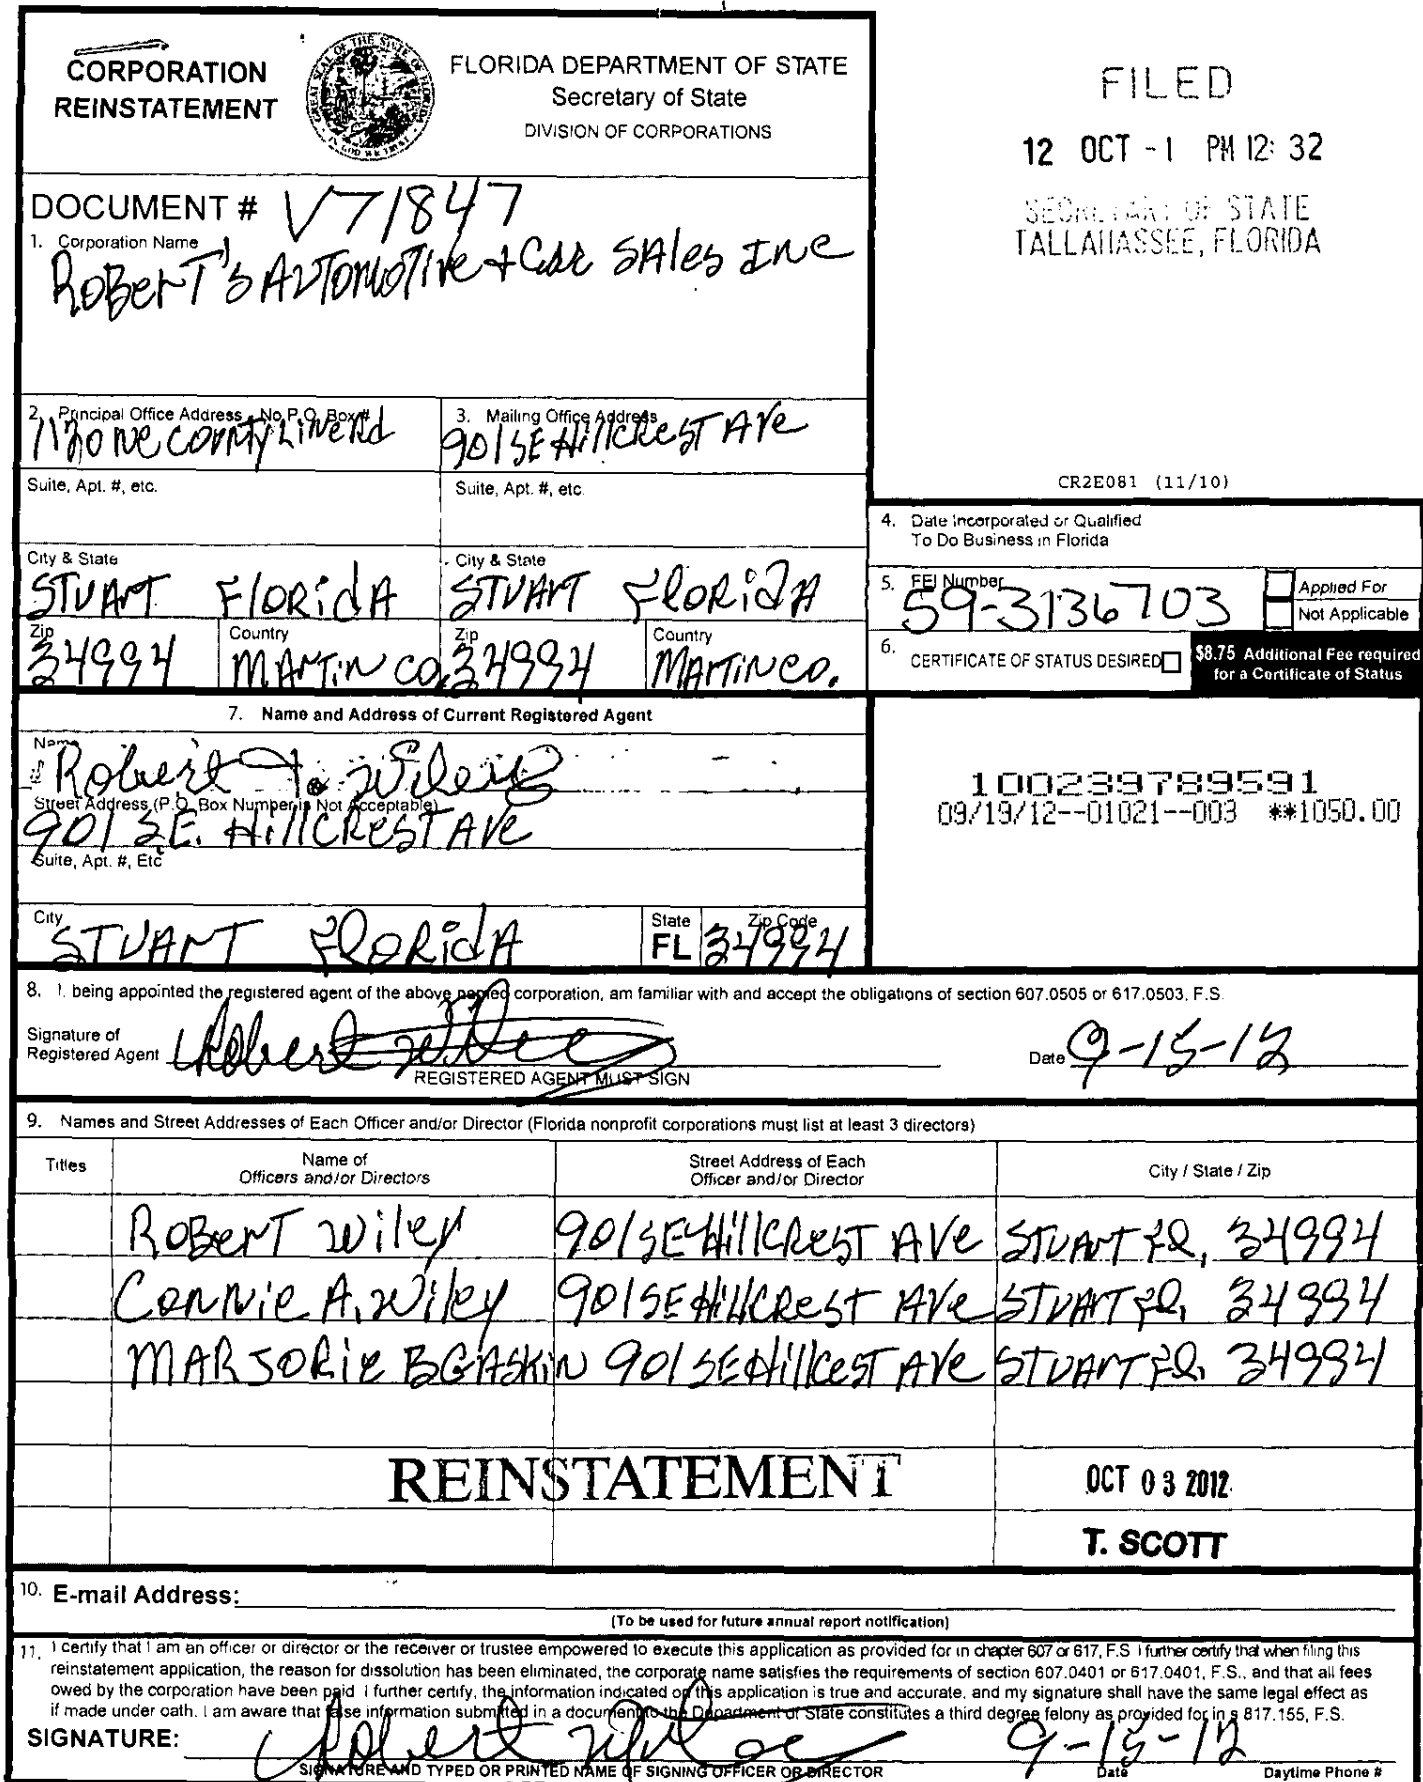 CORPORATION
REINSTATEMENT
FLORIDA DEPARTMENT OF STATE
Secretary of State
DIVISION OF CORPORATIONS
FILED
12 OCT -1 PM 12: 32
SECRETARY OF STATE
TALLAHASSEE, FLORIDA
DOCUMENT # V71847
1. Corporation Name
ROBERT'S AUTOMOTIVE + CAR SALES INC
2. Principal Office Address - No P.O. Box #
NE COUNTY LINE Rd
3. Mailing Office Address
901 SE HillCREST AVe
Suite, Apt. #, etc.
Suite, Apt. #, etc.
CR2E081 (11/10)
4. Date Incorporated or Qualified
To Do Business in Florida
City & State
STUART FlORidA
City & State
STUART FlORidA
5. FEI Number
59-3136703
Applied For
Not Applicable
Zip
34994
Country
MARTIN CO.
Zip
34994
Country
MARTIN CO.
6. CERTIFICATE OF STATUS DESIRED
$8.75 Additional Fee required
for a Certificate of Status
7. Name and Address of Current Registered Agent
Name
Robert Wiley
Street Address (P.O. Box Number is Not Acceptable)
901 S.E. HillCREST AVe
Suite, Apt. #, Etc
City
STUART FlORidA
State
FL
Zip Code
34994
100239789591
09/19/12--01021--003 **1050.00
8. I, being appointed the registered agent of the above named corporation, am familiar with and accept the obligations of section 607.0505 or 617.0503, F.S.
Signature of
Registered Agent Robert Wiley
REGISTERED AGENT MUST SIGN
Date 9-15-12
9. Names and Street Addresses of Each Officer and/or Director (Florida nonprofit corporations must list at least 3 directors)
Titles
Name of
Officers and/or Directors
Street Address of Each
Officer and/or Director
City / State / Zip
ROBERT Wiley 901 SE HillCREST AVe STUART Fl, 34994
CONNiE A. Wiley 901 SE HillCREST AVe STUART Fl, 34994
MARJORiE B GASKiN 901 SE HillCeST AVe STUART Fl, 34994
REINSTATEMENT
OCT 03 2012
T. SCOTT
10. E-mail Address:
(To be used for future annual report notification)
11. I certify that I am an officer or director or the receiver or trustee empowered to execute this application as provided for in chapter 607 or 617, F.S. I further certify that when filing this
reinstatement application, the reason for dissolution has been eliminated, the corporate name satisfies the requirements of section 607.0401 or 617.0401, F.S., and that all fees
owed by the corporation have been paid. I further certify, the information indicated on this application is true and accurate, and my signature shall have the same legal effect as
if made under oath. I am aware that false information submitted in a document to the Department of State constitutes a third degree felony as provided for in s 817.155, F.S.
SIGNATURE: Robert Wiley 9-15-12
SIGNATURE AND TYPED OR PRINTED NAME OF SIGNING OFFICER OR DIRECTOR
Date
Daytime Phone #